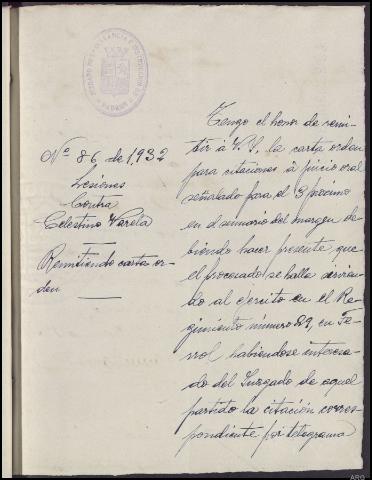 JUZGADO DE 1ª INSTANCIA E INSTRUCCION DE
PADRON
Nº 86 de 1,932
Lesiones
Contra
Celestino Varela
Remitiendo carta or-
den
Tengo el honor de remi-
tir á V.S. la carta orden
para citaciones á juicio oral
señalado para el 3 próximo
en el sumario del margen de-
biendo hacer presente que
el procesado se halla sirvien-
do al ejército en el Re-
gimiento número 29, en Fe-
rrol habiendose interesa-
do del Juzgado de aquel
partido la citación corres-
pondiente por telegrama
ARG